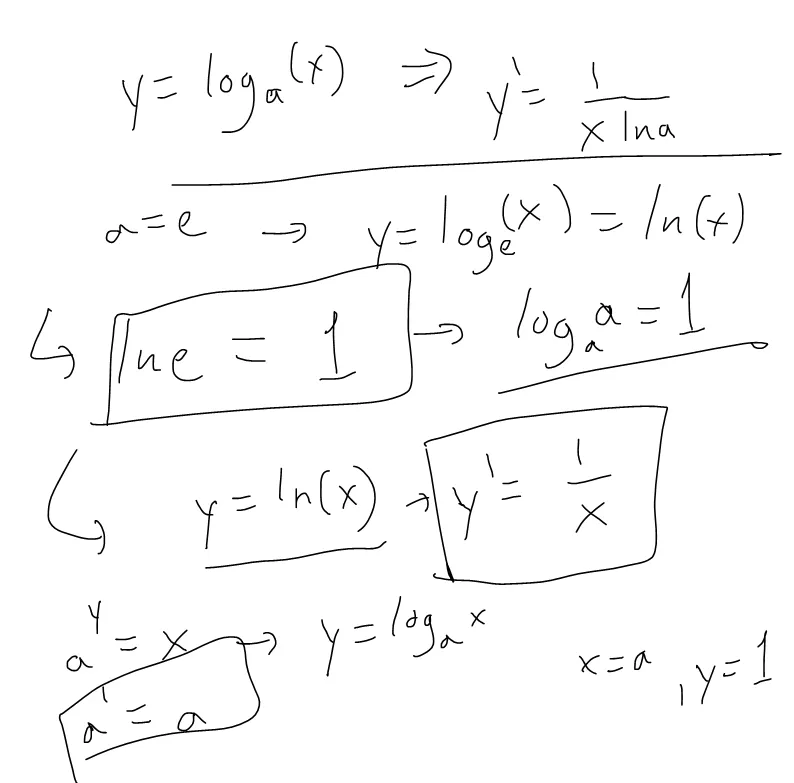 y = log_a(x) ⇒ y' = 1/(x ln a)
a = e → y = log_e(x) = ln(x)
↳ ln e = 1 → log_a a = 1
↳ y = ln(x) → y' = 1/x
a^y = x → y = log_a x
x = a , y = 1
a^1 = a